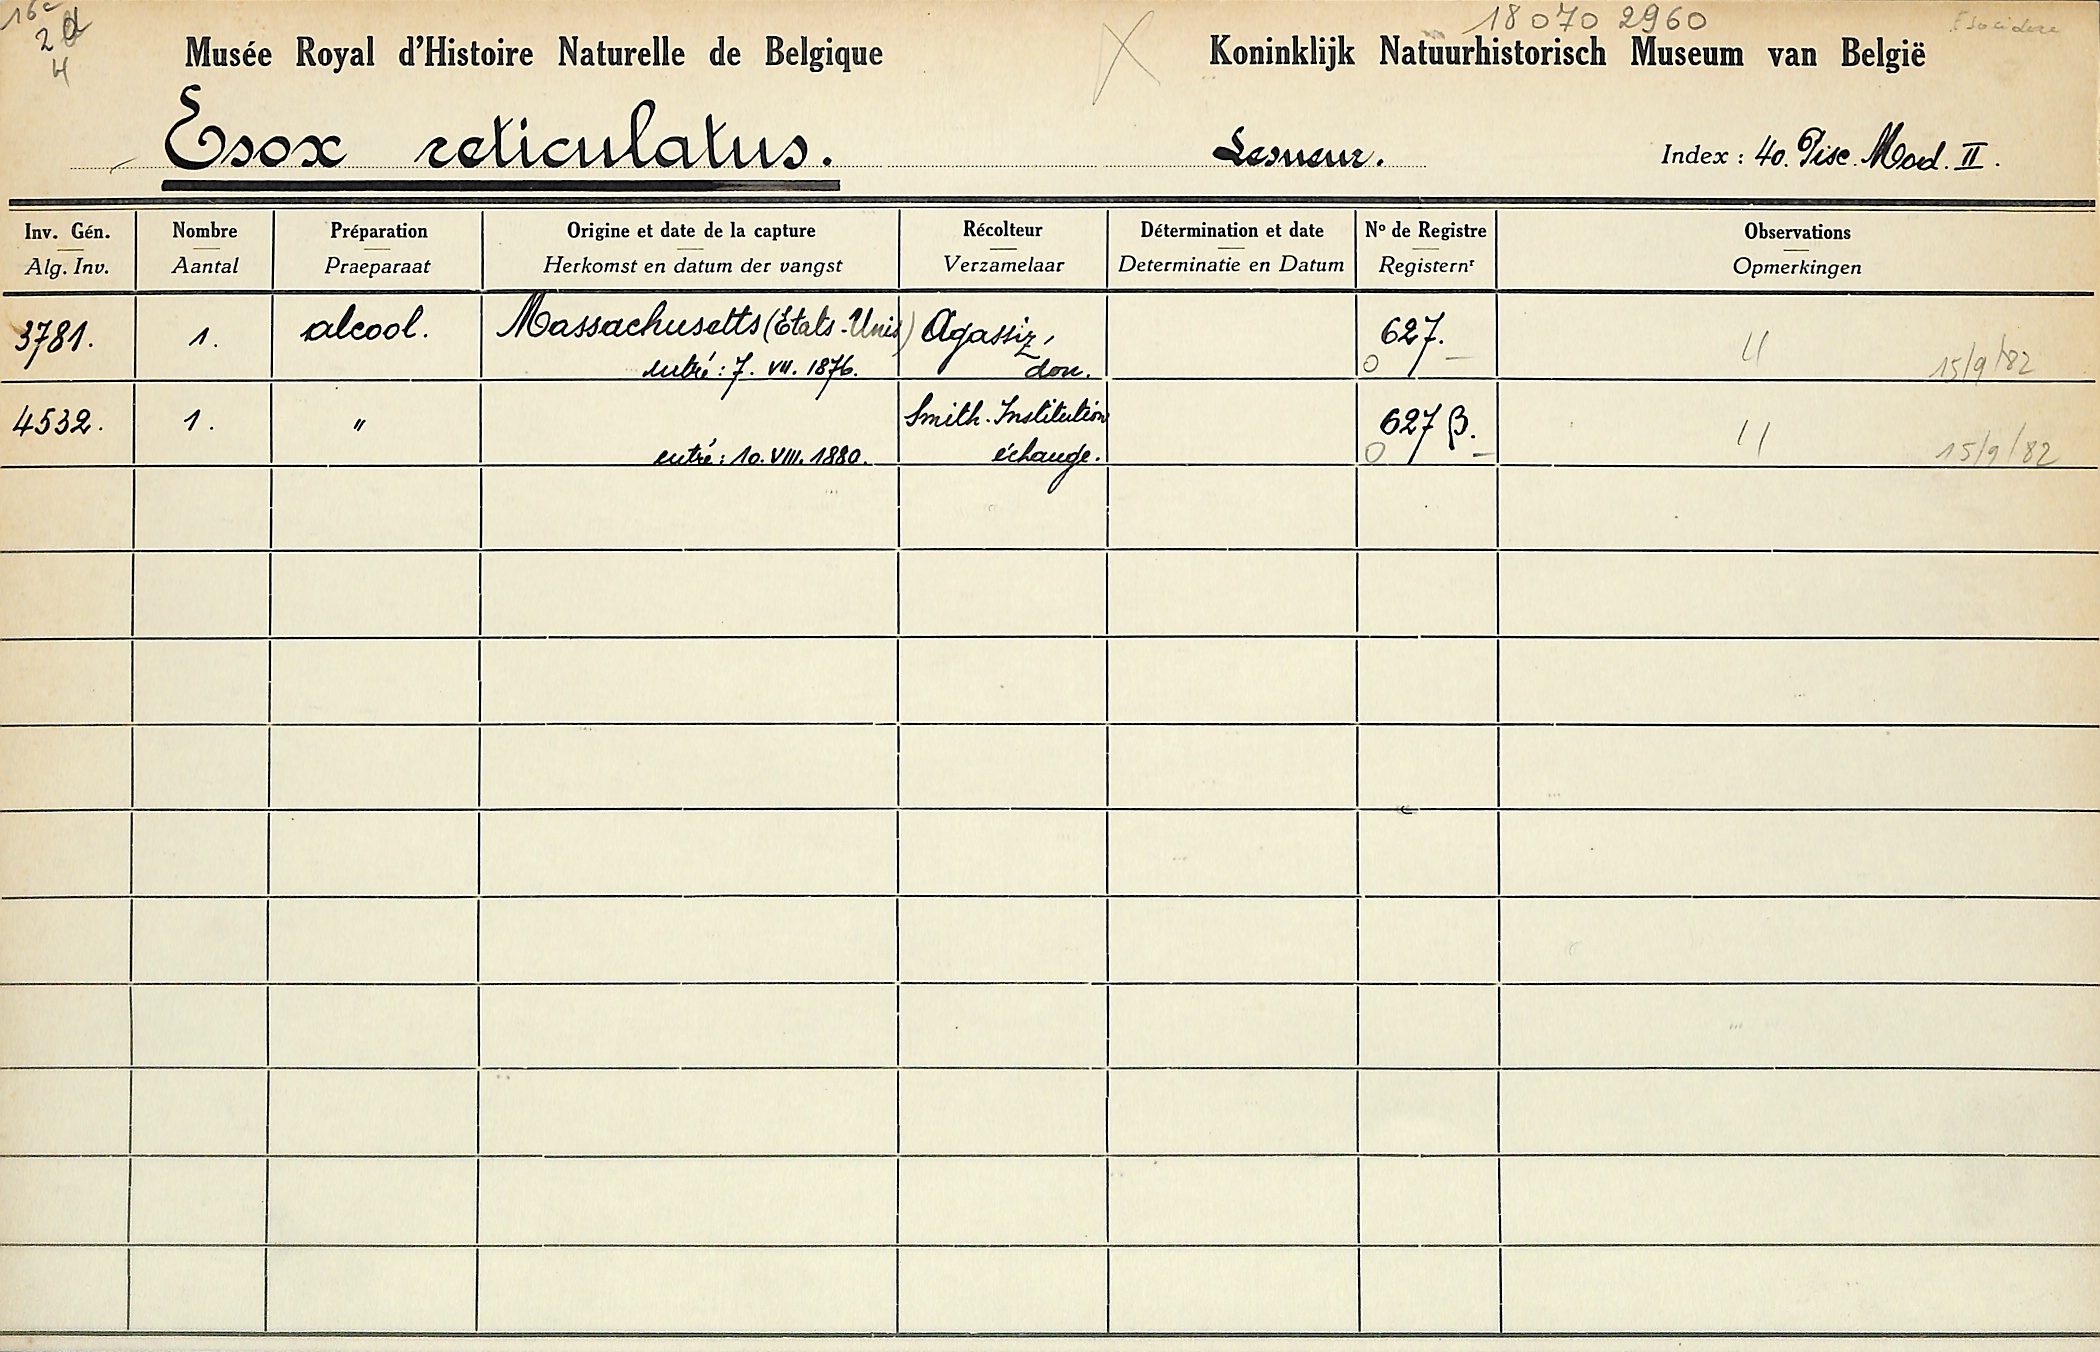 16c
2d
4
18070 2960
Esocidae
Musée Royal d'Histoire Naturelle de Belgique
Koninklijk Natuurhistorisch Museum van België
Esox reticulatus. Lesueur. Index : 40. Pisc. Mod. II.
Inv. Gén. Nombre Préparation Origine et date de la capture Récolteur Détermination et date Nº de Registre Observations
Alg. Inv. Aantal Praeparaat Herkomst en datum der vangst Verzamelaar Determinatie en Datum Registernr Opmerkingen
3781. 1. alcool. Massachusetts (Etats-Unis) Agassiz, 627. 
entré : 7. VII. 1876. don. 15/9/82
4532. 1. " Smith. Institution 627 β.
entré : 10. VIII. 1880. échange. 15/9/82